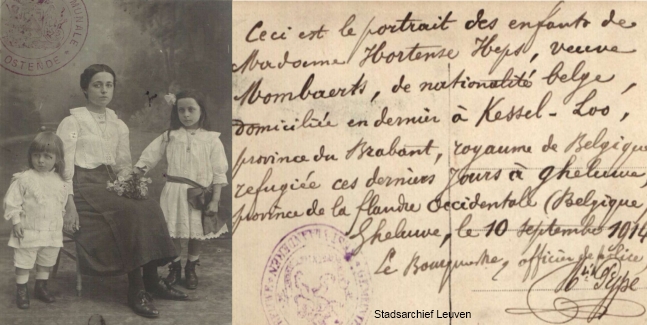 OSTENDE
Ceci est le portrait des enfants de
Madame Hortense Heps, veuve
Mombaerts, de nationalité belge,
domiciliée en dernier à Kessel-Loo,
province du Brabant, royaume de Belgique
refugiée ces derniers jours à Gheluwe,
province de la flandre Occidentale (Belgique
Gheluwe, le 10 septembre 1914
Le officier de police
Stadsarchief Leuven